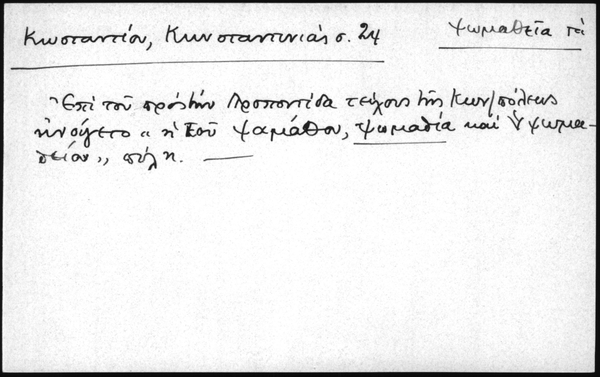 Κωσταντίου, Κωνσταντινιάς σ. 24
ψωμαθεῖα τὰ
Ἐπὶ τοῦ πρὸς τὴν Προποντίδα τείχους τῆς Κων/πόλεως
ἠνοίγετο « ἡ τοῦ ψαμάθου, ψωμαθία καὶ ψωμα-
θείου », πύλη. —